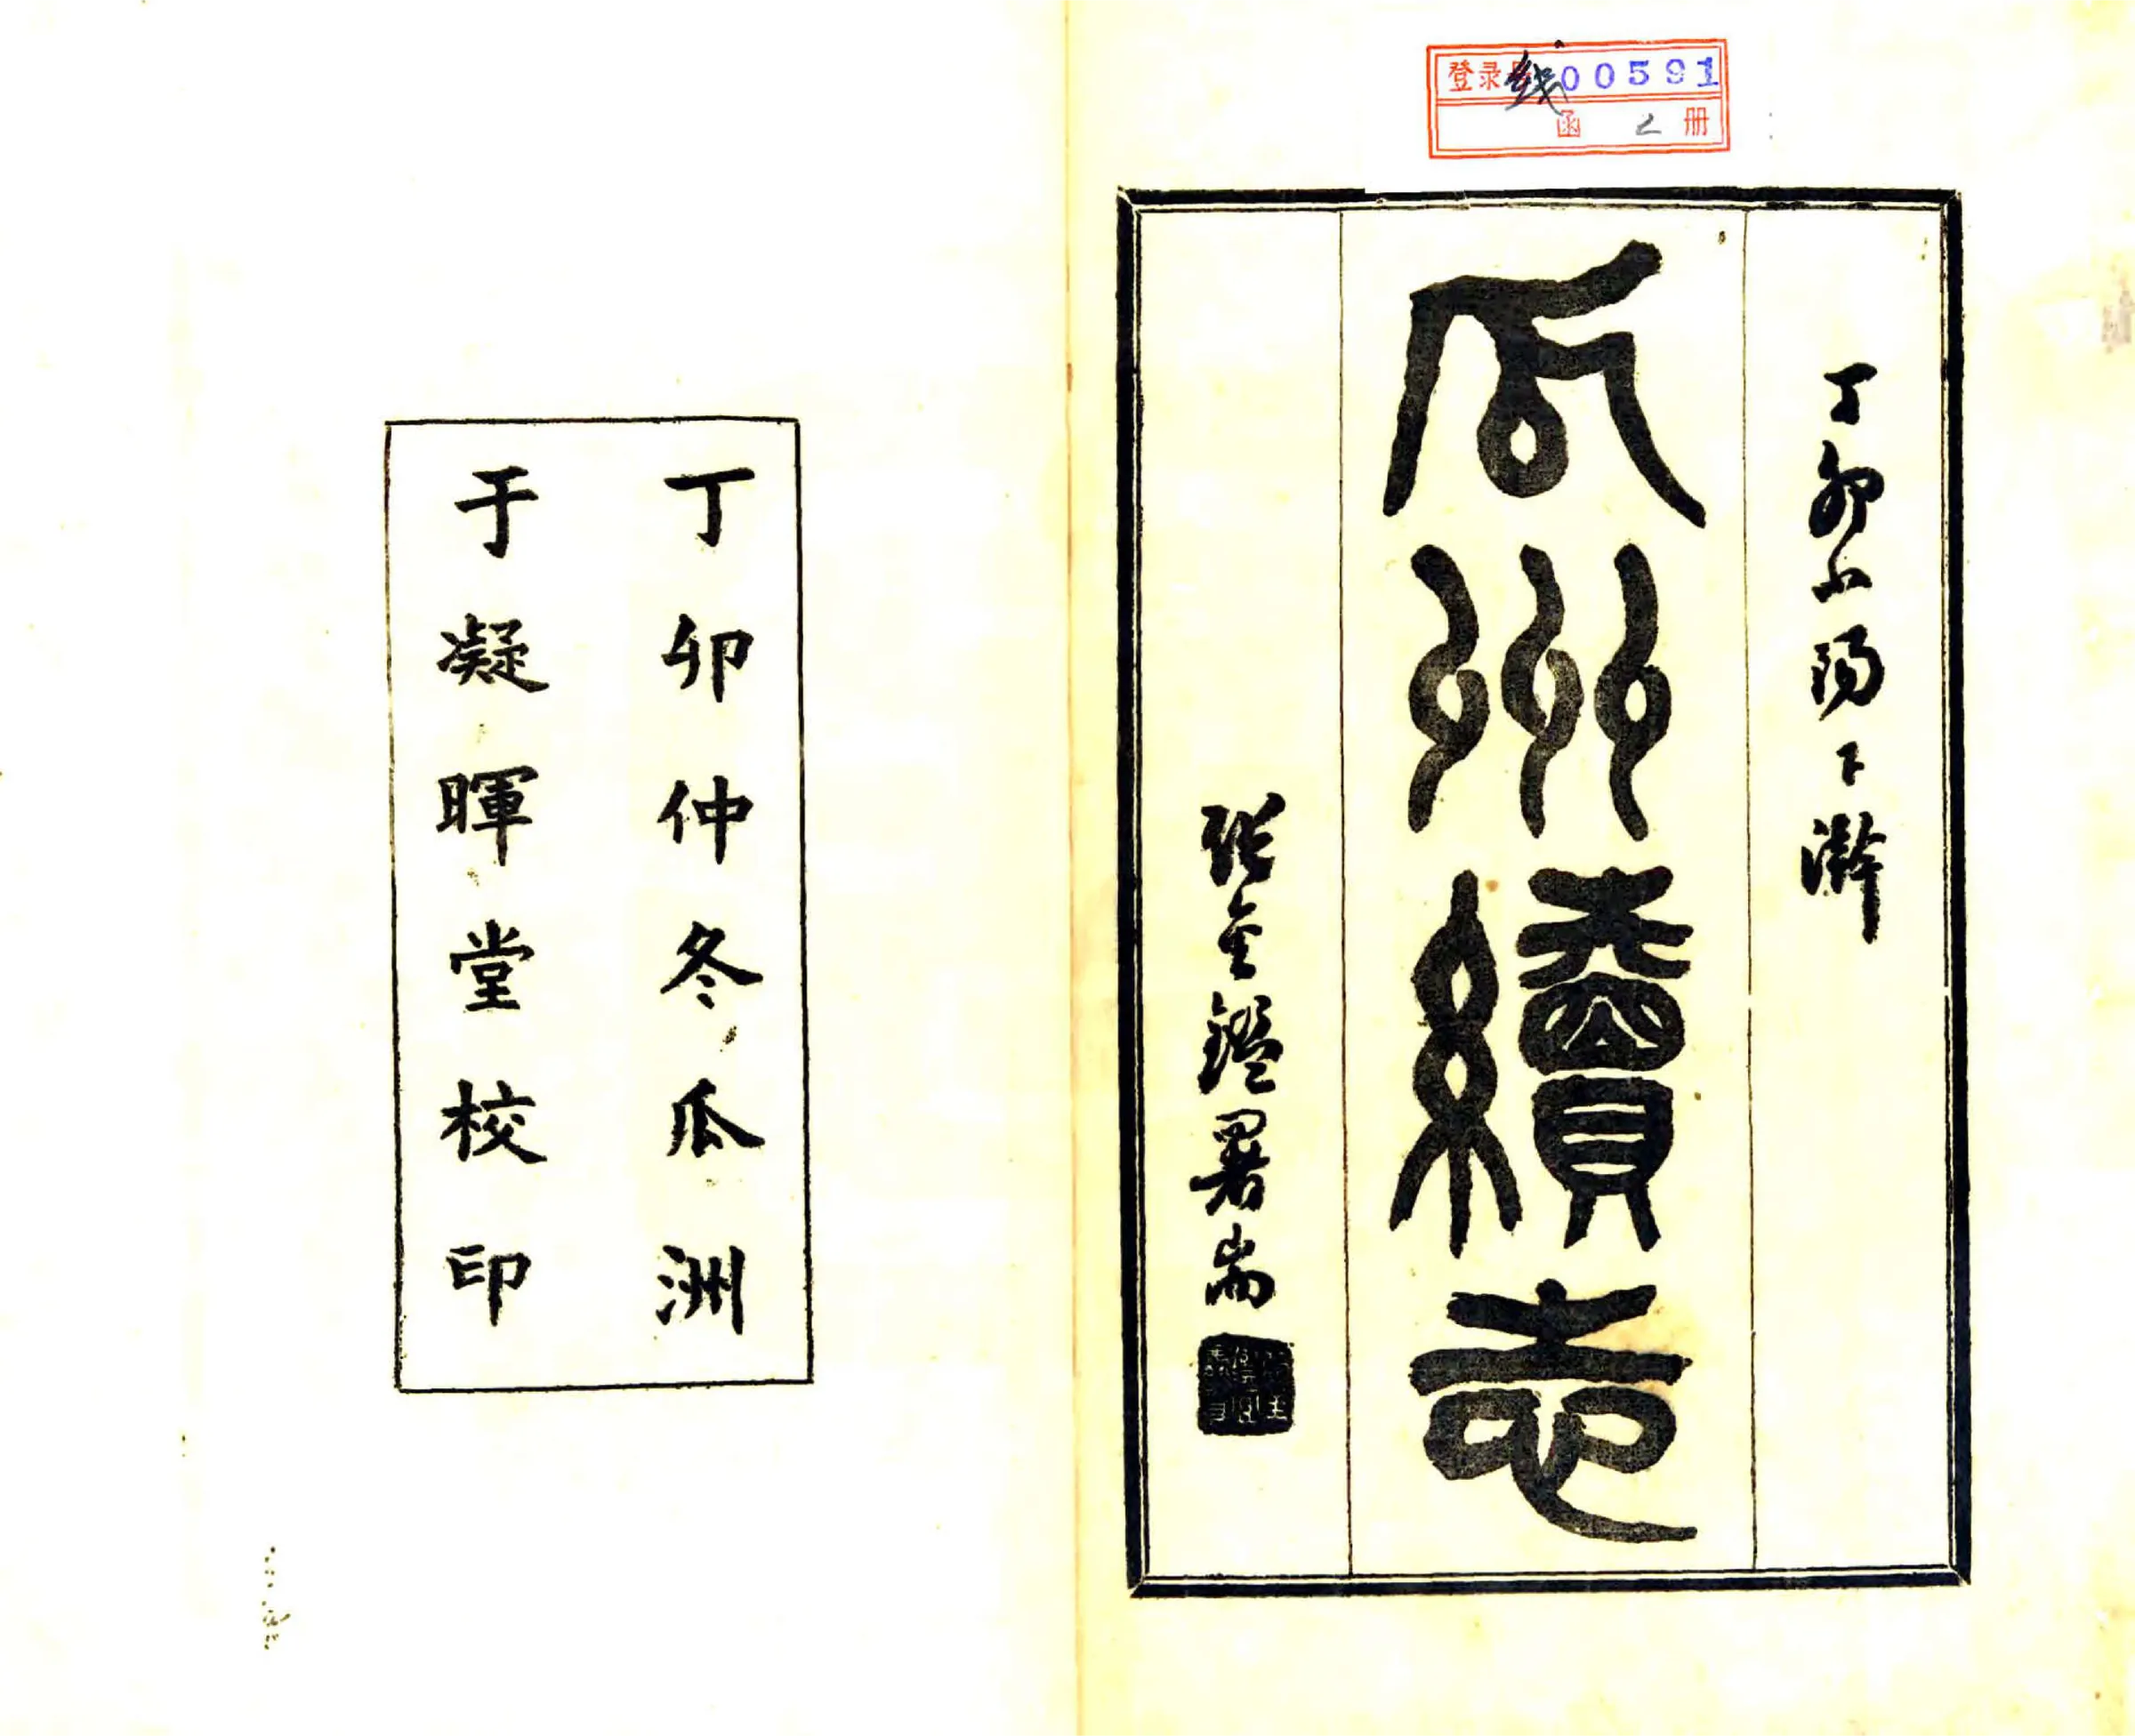 登录号 线00591
函 2 册
丁卯小陽下澣
瓜州續志
張金鑑署耑
丁卯仲冬瓜洲
于凝暉堂校印